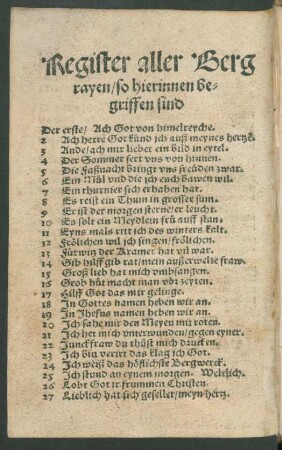 Register aller Berg
rayen/so hierinnen be-
griffen sind
Der erste/ Ach Got von himelreyche.
2 Ach herre Got künd ich auß meynes hertzē.
3 Ande/ach mir lieber ein bild in eytel.
4 Der Sommer fert vns von hinnen.
5 Die Faßnacht bringt vns freüden zwar.
6 Ein Mül vnd die ich euch bawen wil.
7 Ein thurnier sich erhaben hat.
8 Es reist ein Thum in grosser sum.
9 Er ist der morgen sterne/er leucht.
10 Es solt ein Meydlein frü auff stan
11 Eyns mals ritt ich des winters kalt.
12 Frölichen wil ich singen/frölichen.
13 Fürwitz der Kramer hat vil war.
14 Gib hülff gib rat/mein außerwelte fraw.
15 Groß lieb hat mich vmbfangen.
16 Grob hüt macht man vōr zeyten.
17 Hilff Got das mir gelinge.
18 In Gottes namen heben wir an.
19 In Jhesus namen heben wir an.
20 Ich sahe mir den Meyen mit roten.
21 Ich het mich vnterwunden/gegen eyner.
22 Junckfraw du thüst mich drucken.
23 Ich bin verirt das klag ich Got.
24 Ich weiß das höflichste Bergwerck.
25 Ich stund an eynem morgen. Weltlich.
26 Lobt Got ir frummen Christen.
27 Lieblich hat sich gesellet/meyn hertz.